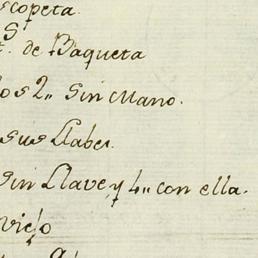 scopeta.
s. de Baqueta
os 2,, Sin Mano.
sus Llabes.
sin Llave, y 4,, con ella.
viejo